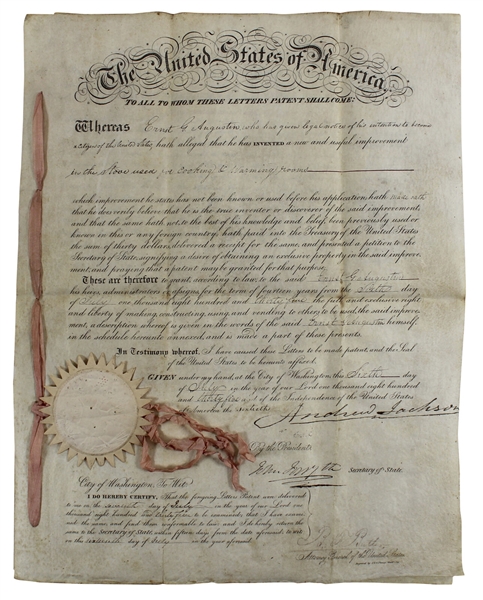 The United States of America,
TO ALL TO WHOM THESE LETTERS PATENT SHALL COME:
Whereas Ernst G Augustin who has given legal notice of his intention to become
a citizen of the United States, hath alleged that he has INVENTED a new and useful improvement
in the Stove used for Cooking & Warming rooms
which improvement he states has not been known or used before his application, hath made oath
that he does verily believe that he is the true inventor or discoverer of the said improvement,
and that the same hath not, to the best of his knowledge and belief, been previously used or
known in this or any foreign country, hath paid into the Treasury of the United States
the sum of thirty dollars, delivered a receipt for the same, and presented a petition to the
Secretary of State, signifying a desire of obtaining an exclusive property in the said improve-
ment, and praying that a patent may be granted for that purpose.
These are therefore to grant, according to law, to the said Ernst G Augustin
his heirs, administrators or assigns, for the term of fourteen years from the Sixth day
of July one thousand eight hundred and thirty five the full and exclusive right
and liberty of making, constructing, using, and vending to others to be used, the said improve-
ment, a description whereof is given in the words of the said Ernst G Augustin himself,
in the schedule hereunto annexed, and is made a part of these presents.
In Testimony whereof, I have caused these Letters to be made patent, and the Seal
of the United States to be hereunto affixed.
GIVEN under my hand, at the City of Washington this Sixth day
of July in the year of our Lord one thousand eight hundred
and thirty five and of the Independence of the United States
of America the sixtieth
Andrew Jackson
By the President
John Forsyth Secretary of State.
City of Washington, To Wit:
I DO HEREBY CERTIFY, That the foregoing Letters Patent were delivered
to me on the day of July in the year of our Lord one
thousand eight hundred and thirty five to be examined; that I have examined
the same, and find them conformable to law; and I do hereby return the
same to the Secretary of State, within fifteen days from the date aforesaid, to wit:
on this day of July in the year aforesaid.
Attorney General of the United States